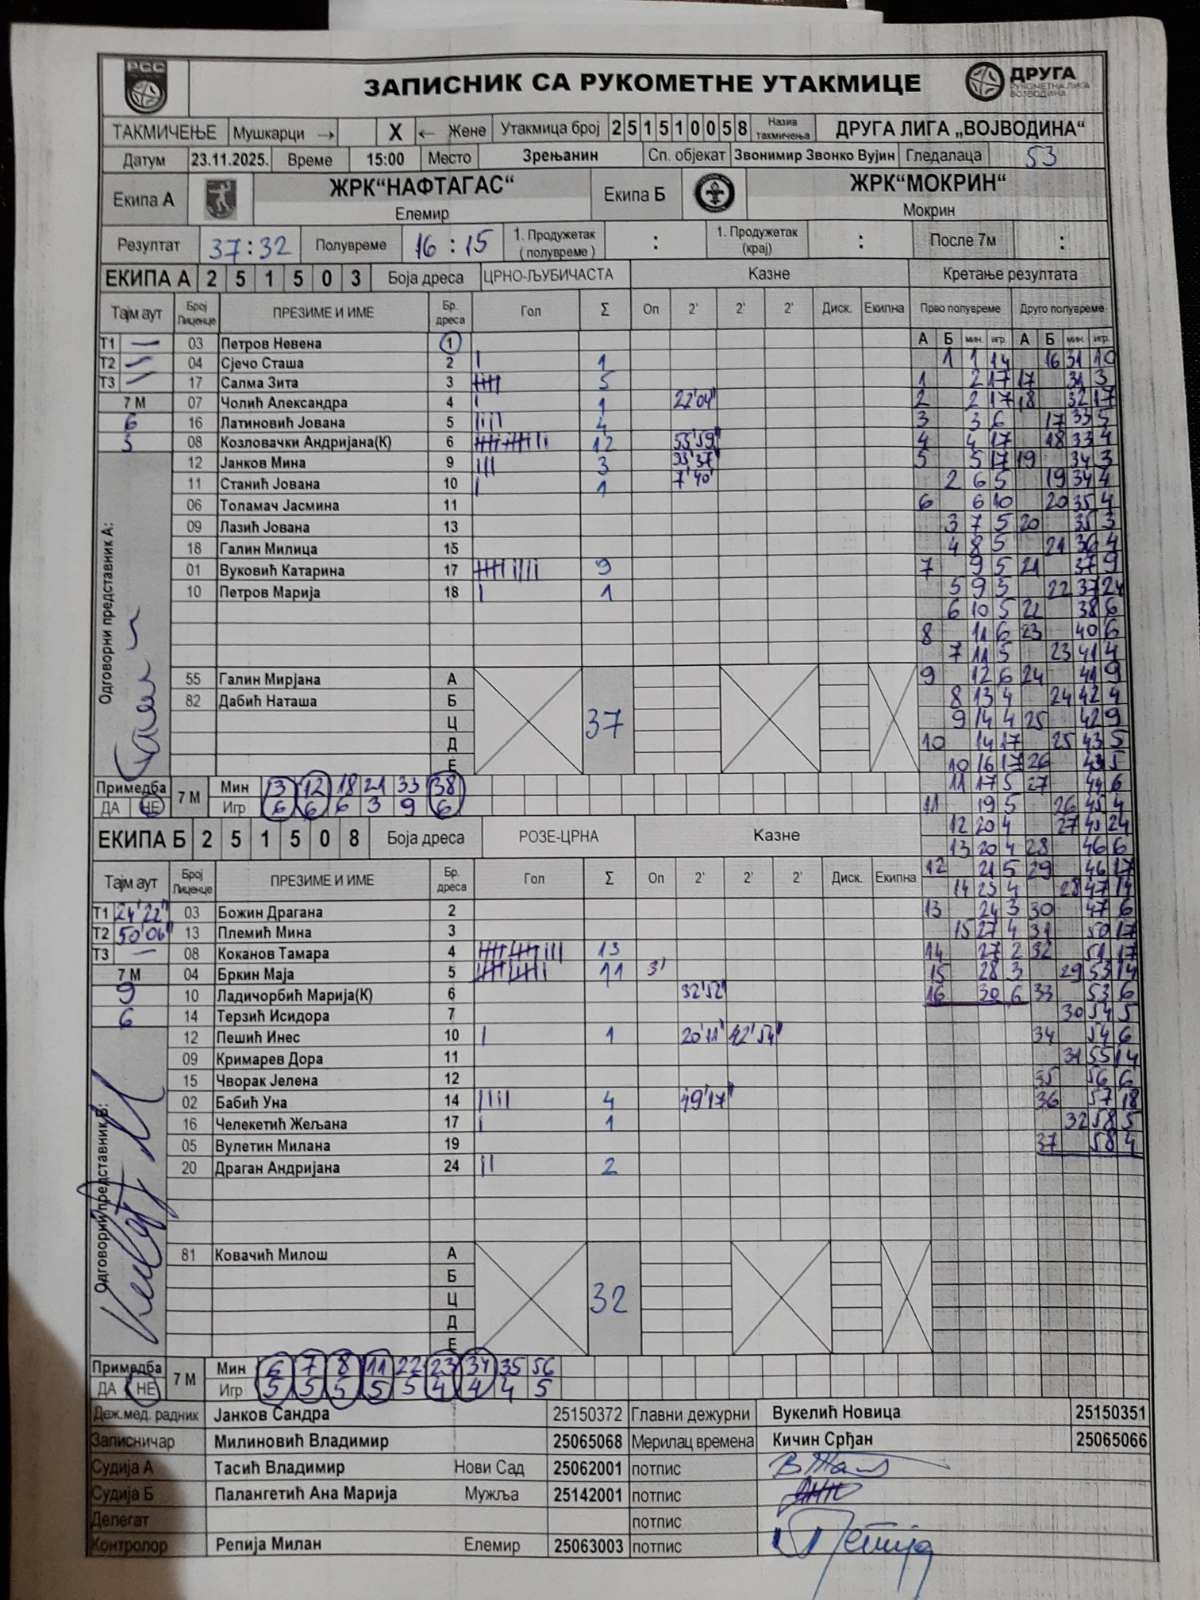 РСС
ЗАПИСНИК СА РУКОМЕТНЕ УТАКМИЦЕ
ДРУГА
РУКОМЕТНА ЛИГА
ВОЈВОДИНА
ТАКМИЧЕЊЕ Мушкарци → X ← Жене Утакмица број 2 5 1 5 1 0 0 5 8 Назив такмичења ДРУГА ЛИГА „ВОЈВОДИНА“
Датум 23.11.2025. Време 15:00 Место Зрењанин Сп. објекат Звонимир Звонко Вујин Гледалаца 53
Екипа А ЖРК“НАФТАГАС“ Елемир Екипа Б ЖРК“МОКРИН“ Мокрин
Резултат 37:32 Полувреме 16:15 1. Продужетак (полувреме) : 1. Продужетак (крај) : После 7м :
ЕКИПА А 2 5 1 5 0 3 Боја дреса ЦРНО-ЉУБИЧАСТА Казне Кретање резултата
Тајм аут Број Лиценце ПРЕЗИМЕ И ИМЕ Бр. дреса Гол Σ Оп 2' 2' 2' Диск. Екипна Прво полувреме Друго полувреме
А Б мин. игр. А Б мин. игр.
Т1 — 03 Петров Невена 1
Т2 — 04 Сјечо Сташа 2 1
Т3 — 17 Салма Зита 3 5
7 М 07 Чолић Александра 4 1 22'04"
6 16 Латиновић Јована 5 4
3 08 Козловачки Андријана(К) 6 12 53'59"
12 Јанков Мина 9 3 35'37"
11 Станић Јована 10 1 7'40"
06 Толамач Јасмина 11
09 Лазић Јована 13
18 Галин Милица 15
01 Вуковић Катарина 17 9
10 Петров Марија 18 1
Одговорни представник А:
55 Галин Мирјана А
82 Дабић Наташа Б
Ц
Д
Е
37
Примедба ДА НЕ 7 М Мин 3 12 18 21 33 38
Игр 6 6 6 3 9 6
1 1 14 16 31 10
1 2 17 17 31 3
2 2 17 18 32 17
3 3 6 17 33 5
4 4 17 18 33 4
5 5 17 19 34 3
2 6 5 19 34 4
6 6 10 20 35 4
3 7 5 20 35 3
4 8 5 21 36 4
7 9 5 21 37 9
5 9 5 22 37 24
6 10 5 22 38 6
8 11 6 23 40 6
7 11 5 23 41 4
9 12 6 24 41 9
8 13 4 24 42 4
9 14 4 25 42 9
10 14 17 25 43 5
10 16 17 26 43 5
11 17 5 27 44 6
11 19 5 26 45 4
12 20 4 27 45 24
13 20 4 28 46 6
12 21 5 29 46 17
14 23 4 28 47 14
13 24 3 30 47 6
15 27 4 31 50 17
14 27 2 32 51 17
15 28 3 29 53 14
16 30 6 33 53 6
30 54 5
34 54 6
31 55 14
35 56 6
36 57 18
32 58 5
37 58 4
ЕКИПА Б 2 5 1 5 0 8 Боја дреса РОЗЕ-ЦРНА Казне
Тајм аут Број Лиценце ПРЕЗИМЕ И ИМЕ Бр. дреса Гол Σ Оп 2' 2' 2' Диск. Екипна
Т1 24'22" 03 Божин Драгана 2
Т2 50'06" 13 Племић Мина 3
Т3 — 08 Коканов Тамара 4 13
7 М 04 Бркин Маја 5 11 3'
9 10 Ладичорбић Марија(К) 6 32'52"
6 14 Терзић Исидора 7
12 Пешић Инес 10 1 20'11" 42'54"
09 Кримарев Дора 11
15 Чворак Јелена 12
02 Бабић Уна 14 4 49'17"
16 Челекетић Жељана 17 1
05 Вулетин Милана 19
20 Драган Андријана 24 2
Одговорни представник Б:
81 Ковачић Милош А
Б
Ц
Д
Е
32
Примедба ДА НЕ 7 М Мин 6 7 8 11 22 23 34 35 56
Игр 5 5 5 5 5 4 4 4 5
Деж.мед. радник Јанков Сандра 25150372 Главни дежурни Вукелић Новица 25150351
Записничар Милиновић Владимир 25065068 Мерилац времена Кичин Срђан 25065066
Судија А Тасић Владимир Нови Сад 25062001 потпис
Судија Б Палангетић Ана Марија Мужља 25142001 потпис
Делегат потпис
Контролор Репија Милан Елемир 25063003 потпис